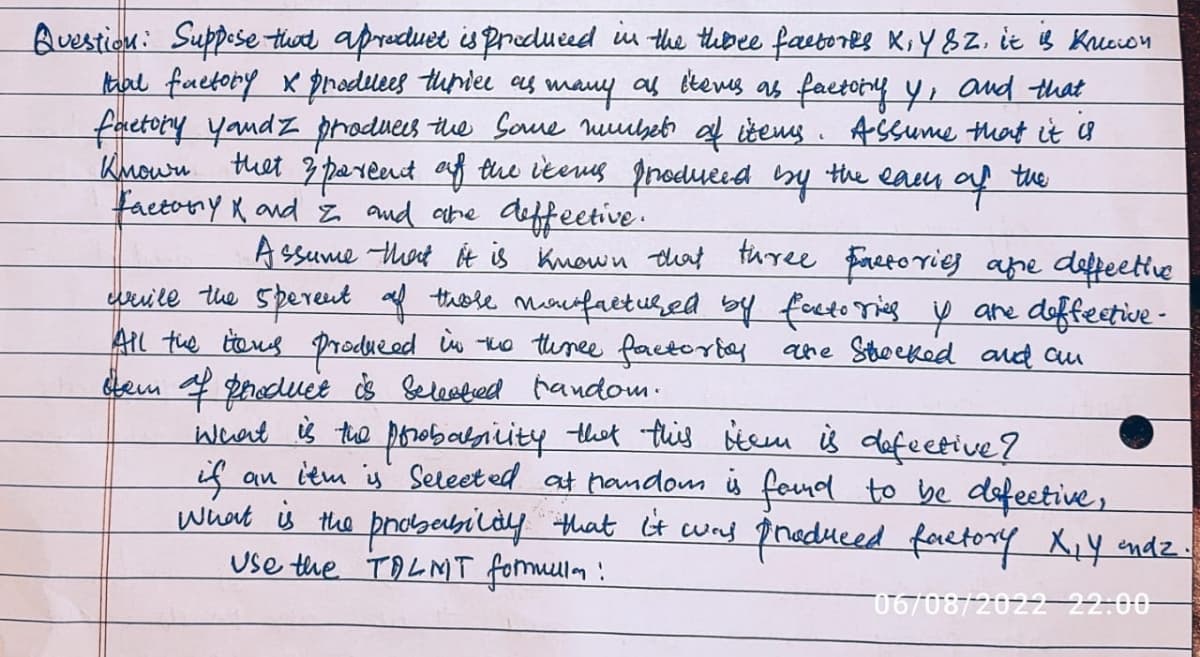 Question: Suppose that a product is produced in the three factores X, Y & Z. it is Known
that factory X produces thrice as many as items as factory y, and that
factory y and Z produces the Same number of items. Assume that it is
Known thet 3 percent of the items produced by the each of the
factory X and Z and are deffective.
Assume that it is known that three factories are deffective
while the 5 perent of those manufactured by factories y are deffective.
All the items produced in the three factories are Stocked and an
item of product is Selected random.
What is the probability thet this item is defective?
if an item is Selected at random is found to be defective,
What is the probability that it was produced factory X, Y and z.
Use the formula:
06/08/2022 22:00